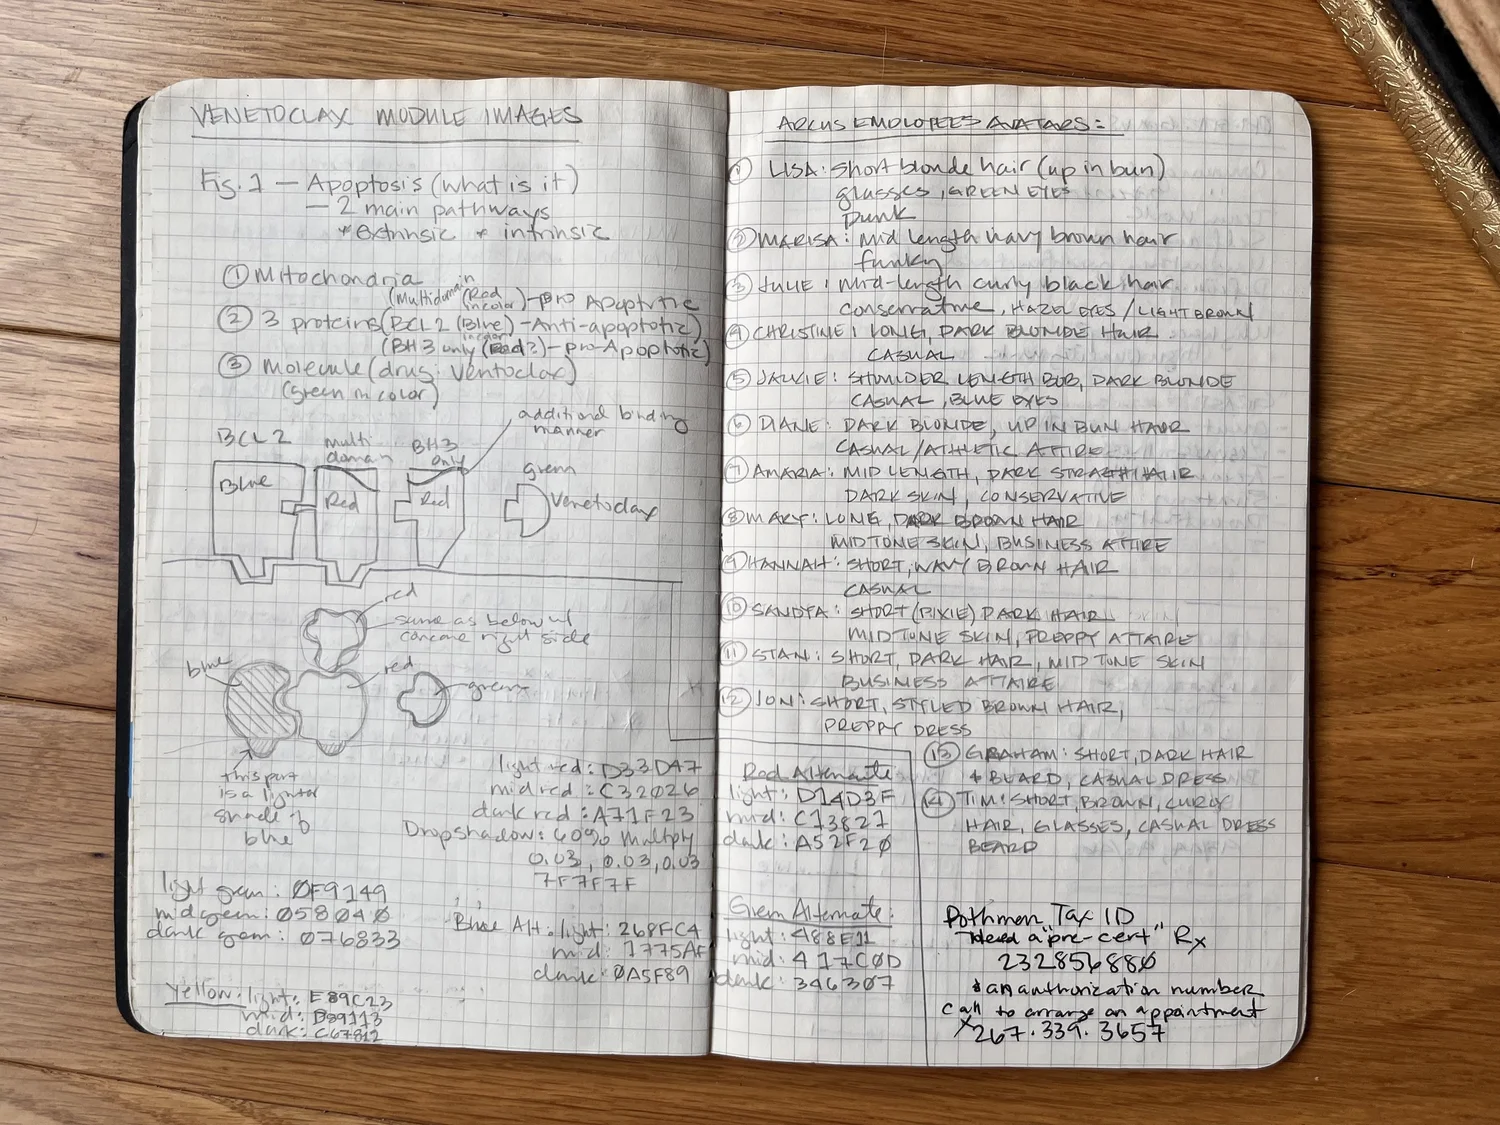 VENETOCLAX MODULE IMAGES
Fig. 1 – Apoptosis (what is it)
– 2 main pathways
* extrinsic * intrinsic
① Mitochondria
(Multidomain (Red in color) - pro Apoptotic
② 3 proteins (BCL2 (Blue) - Anti-apoptotic)
in color
(BH3 only (Red?) - pro-Apoptotic)
③ Molecule (drug: Ventoclax)
(green in color)
additional binding
manner
BCL2
multi
domain
BH3
only
green
Blue
Red
Red
Venetoclax
red
same as below w/
concave right side
blue
red
green
this part
is a lighter
shade of
blue
light red: D33D47
mid red: C32026
dark red: A71F23
Dropshadow: 60% Multiply
0.03, 0.03, 0.03
7F7F7F
light green: 0F9149
mid green: 058040
dark green: 076833
Blue Alt. light: 268FC4
mid: 1775AF
dark: 0A5F89
Yellow: light: E89C23
mid: D89113
dark: C67812
ARCUS EMPLOYEES AVATARS:
① LISA: short blonde hair (up in bun)
glasses, GREEN EYES
Punk
② MARISA: mid length wavy brown hair
funky
③ JULIE: mid-length curly black hair
conservative, HAZEL EYES / LIGHT BROWN
④ CHRISTINE: LONG, DARK BLONDE HAIR
CASUAL
⑤ JACKIE: SHOULDER LENGTH BOB, DARK BLONDE
CASUAL, BLUE EYES
⑥ DIANE: DARK BLONDE, UP IN BUN HAIR
CASUAL/ATHLETIC ATTIRE
⑦ AMARIA: MID LENGTH, DARK STRAGHT HAIR
DARK SKIN, CONSERVATIVE
⑧ MARY: LONG, DARK BROWN HAIR
MIDTONE SKIN, BUSINESS ATTIRE
⑨ HANNAH: SHORT, WAVY BROWN HAIR
CASUAL
⑩ SANDYA: SHORT (PIXIE) DARK HAIR
MIDTONE SKIN, PREPPY ATTAIRE
⑪ STAN: SHORT, DARK HAIR, MID TONE SKIN
BUSINESS ATTAIRE
⑫ JON: SHORT, STYLED BROWN HAIR,
PREPPY DRESS
⑬ GRAHAM: SHORT, DARK HAIR
+ BEARD, CASUAL DRESS
⑭ TIM: SHORT, BROWN, CURLY
HAIR, GLASSES, CASUAL DRESS
BEARD
Red Alternate
light: D14D3F
mid: C13827
dark: A52F20
Green Alternate:
light: 488E11
mid: 417C0D
dark: 346307
Pothmen Tax ID
Need a "pre-cert" Rx
232856880
& an authorization number
call to arrange an appointment
* 267.339.3657